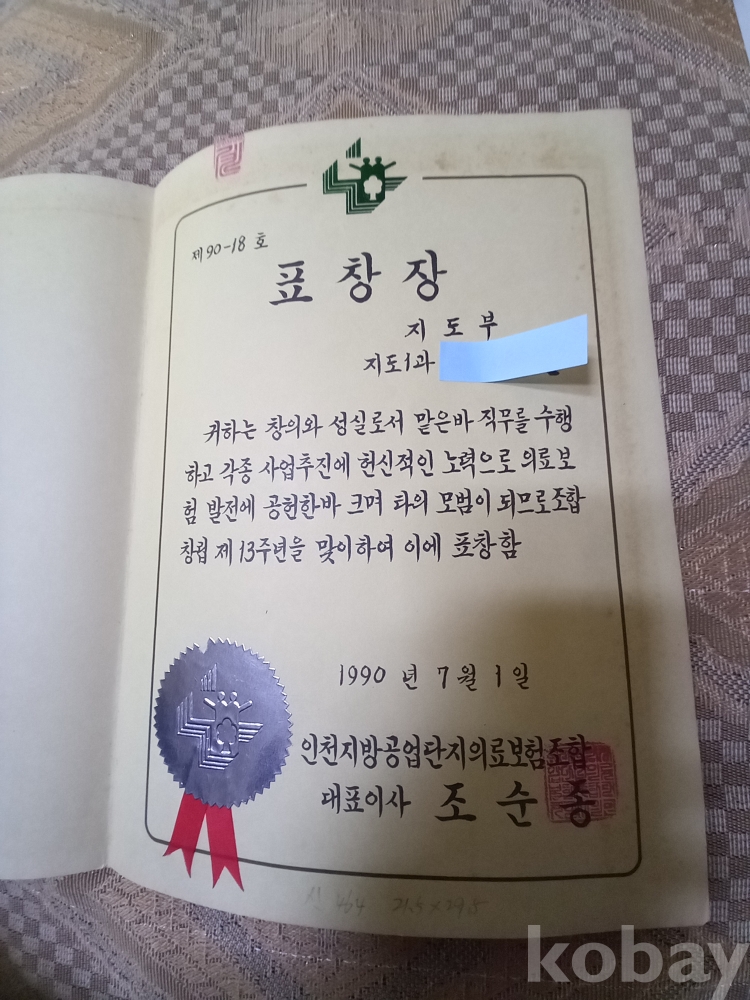 제 90-18 호
표 창 장
지 도 부
지도1과
귀하는 창의와 성실로서 맡은바 직무를 수행
하고 각종 사업추진에 헌신적인 노력으로 의료보
험 발전에 공헌한바 크며 타의 모범이 되므로 조합
창립 제 13주년을 맞이하여 이에 표창함
1990 년 7 월 1 일
인천지방공업단지의료보험조합
대표이사 조 순 종
kobay